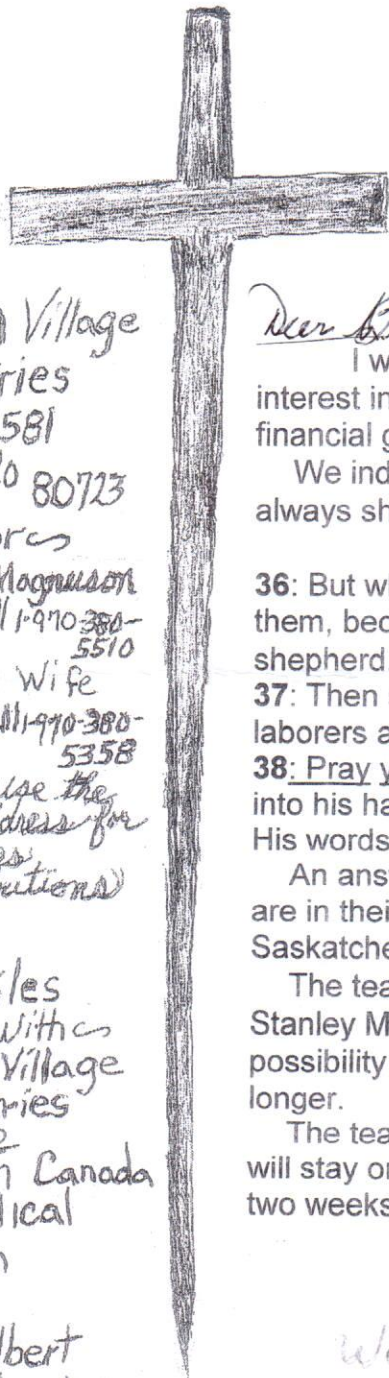 Village
ries
581
80723
ors
Magnuson
1-970-380-
5510
Wife
1-970-380-
5358
use the
dress for
es
butions
les
With
Village
ries
Canada
ical
n
lbert
Dear
I w
interest in
financial g
We ind
always sh
36: But w
them, bec
shepherd
37: Then
laborers a
38: Pray y
into his ha
His words
An ans
are in thei
Saskatche
The tea
Stanley M
possibility
longer.
The tea
will stay o
two weeks